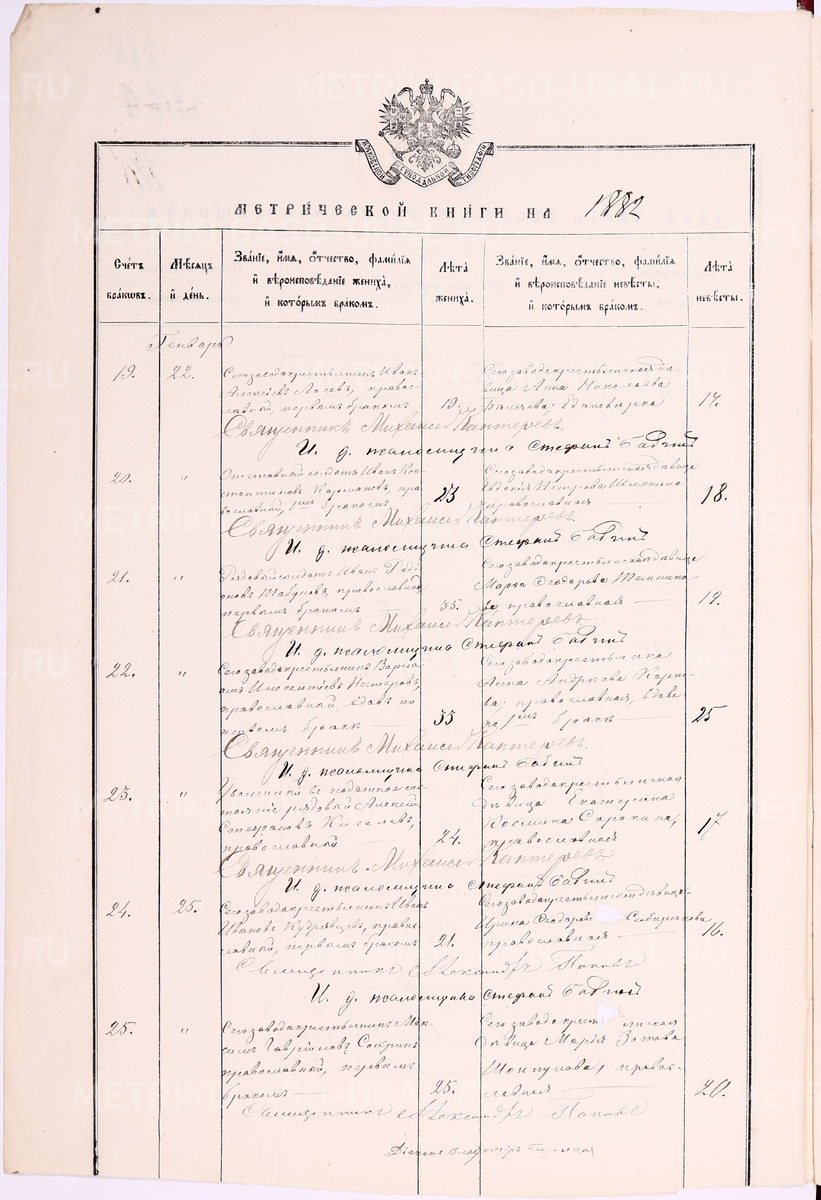 МОСКОВСКОЙ СѴНОДАЛЬНОЙ ТИПОГРАФІИ
МЕТРИ́ЧЕСКОЙ КНИ́ГИ НА 1882
Сче́тъ бра́кѡвъ.
Мѣ́сяцъ и҆ де́нь.
Зва́нїе, и҆́мѧ, ѻ҆́тчество, фамилїѧ и҆ вѣроисповѣ́данїе жениха̀, и҆ кото́рымъ бра́комъ.
Лѣ́та жениха̀.
Зва́нїе, и҆́мѧ, ѻ҆́тчество, фамилїѧ и҆ вѣроисповѣ́данїе невѣ́сты, и҆ кото́рымъ бра́комъ.
Лѣ́та невѣ́сты.
Генварь
19. 22.
Сегозаводакрестьянинъ Иванъ
Алексѣевъ Лосевъ, правос-
лавный, первымъ бракомъ
19.
Сегозаводакрестьянская дѣ-
вица Анна Николаева
Единоверка
17.
Священникъ Михаилъ Каптеревъ.
И. д. псаломщика Стефанъ Бабинъ
20. "
Отставный солдатъ Иванъ Кон-
стантиновъ, пра-
вославный, бракомъ
23
Сегозаводакрестьянская дѣвица
Евдокія Петрова
православная
18.
Священникъ Михаилъ Каптеревъ.
И. д. псаломщика Стефанъ Бабинъ
21. "
Рядовой солдатъ Иванъ Роді-
оновъ Табуновъ, православный
первымъ бракомъ
35.
Сегозаводакрестьянская дѣвица
Марѳа Ѳеодорова
православная
19.
Священникъ Михаилъ Каптеревъ
И. д. псаломщика Стефанъ Бабинъ
22. "
Сегозаводакрестьянинъ Варла-
амъ Инокентіевъ Нестеровъ,
православный, вдовъ по
первомъ бракѣ
33
Сегозаводакрестьянка
Анна Андреева
православная, вдова
по бракѣ
25
Священникъ Михаилъ Каптеревъ.
И. д. псаломщика Стефанъ Бабинъ
23. "
Уволенный въ податное сос-
тояніе рядовой Алексѣй
Стефановъ Киселевъ,
православной
24.
Сегозаводакрестьянская
дѣвица Екатерина
Космина
православная
17
Священникъ Михаилъ Каптеревъ
И. д. псаломщика Стефанъ Бабинъ
24. 25.
Сегозаводакрестьянинъ Иванъ
Ивановъ Кудрявцевъ, право-
славный, первымъ бракомъ
21.
Сегозаводакрестьянская дѣвица
Ирина Ѳеодорова
православная
16.
Священникъ Александръ Поповъ
И. д. псаломщика Стефанъ Бабинъ
25. "
Сегозаводакрестьянинъ Мак-
симъ Гавриловъ Сокринъ
православный, первымъ
бракомъ
25.
Сегозавода
дѣвица Марія Зотова
правос-
лавная
20.
Священникъ Александръ Поповъ
Діаконъ Владиміръ